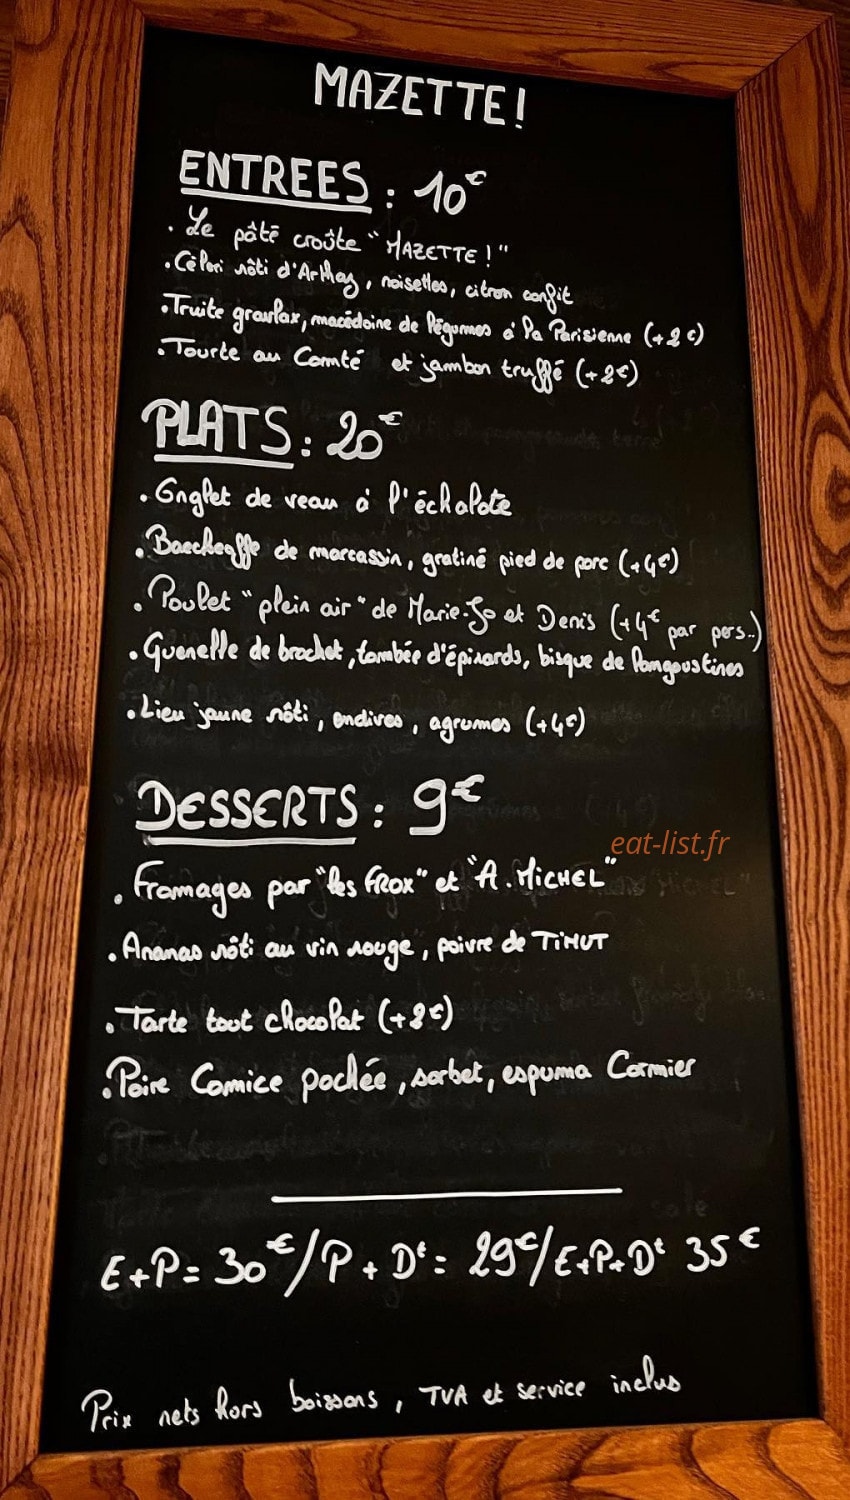 MAZETTE!
ENTREES : 10€
. Le pâté croûte "MAZETTE!"
. Céleri rôti d'Arthez, noisettes, citron confit
. Truite gravlax, macédoine de légumes à la Parisienne (+2€)
. Tourte au Comté et jambon truffé (+2€)
PLATS : 20€
. Onglet de veau à l'échalote
. Baeckeoffe de marcassin, gratiné pied de porc (+4€)
. Poulet "plein air" de Marie-Jo et Denis (+4€ par pers..)
. Quenelle de brochet, tombée d'épinards, bisque de langoustines
. Lieu jaune rôti, endives, agrumes (+4€)
DESSERTS : 9€
eat-list.fr
. Fromages par "les FROX" et "A. MICHEL"
. Ananas rôti au vin rouge, poivre de TIMUT
. Tarte tout chocolat (+2€)
. Poire Comice pochée, sorbet, espuma Cormier
E+P = 30€/P + Dt = 29€/E+P+Dt 35€
Prix nets hors boissons, TVA et service inclus